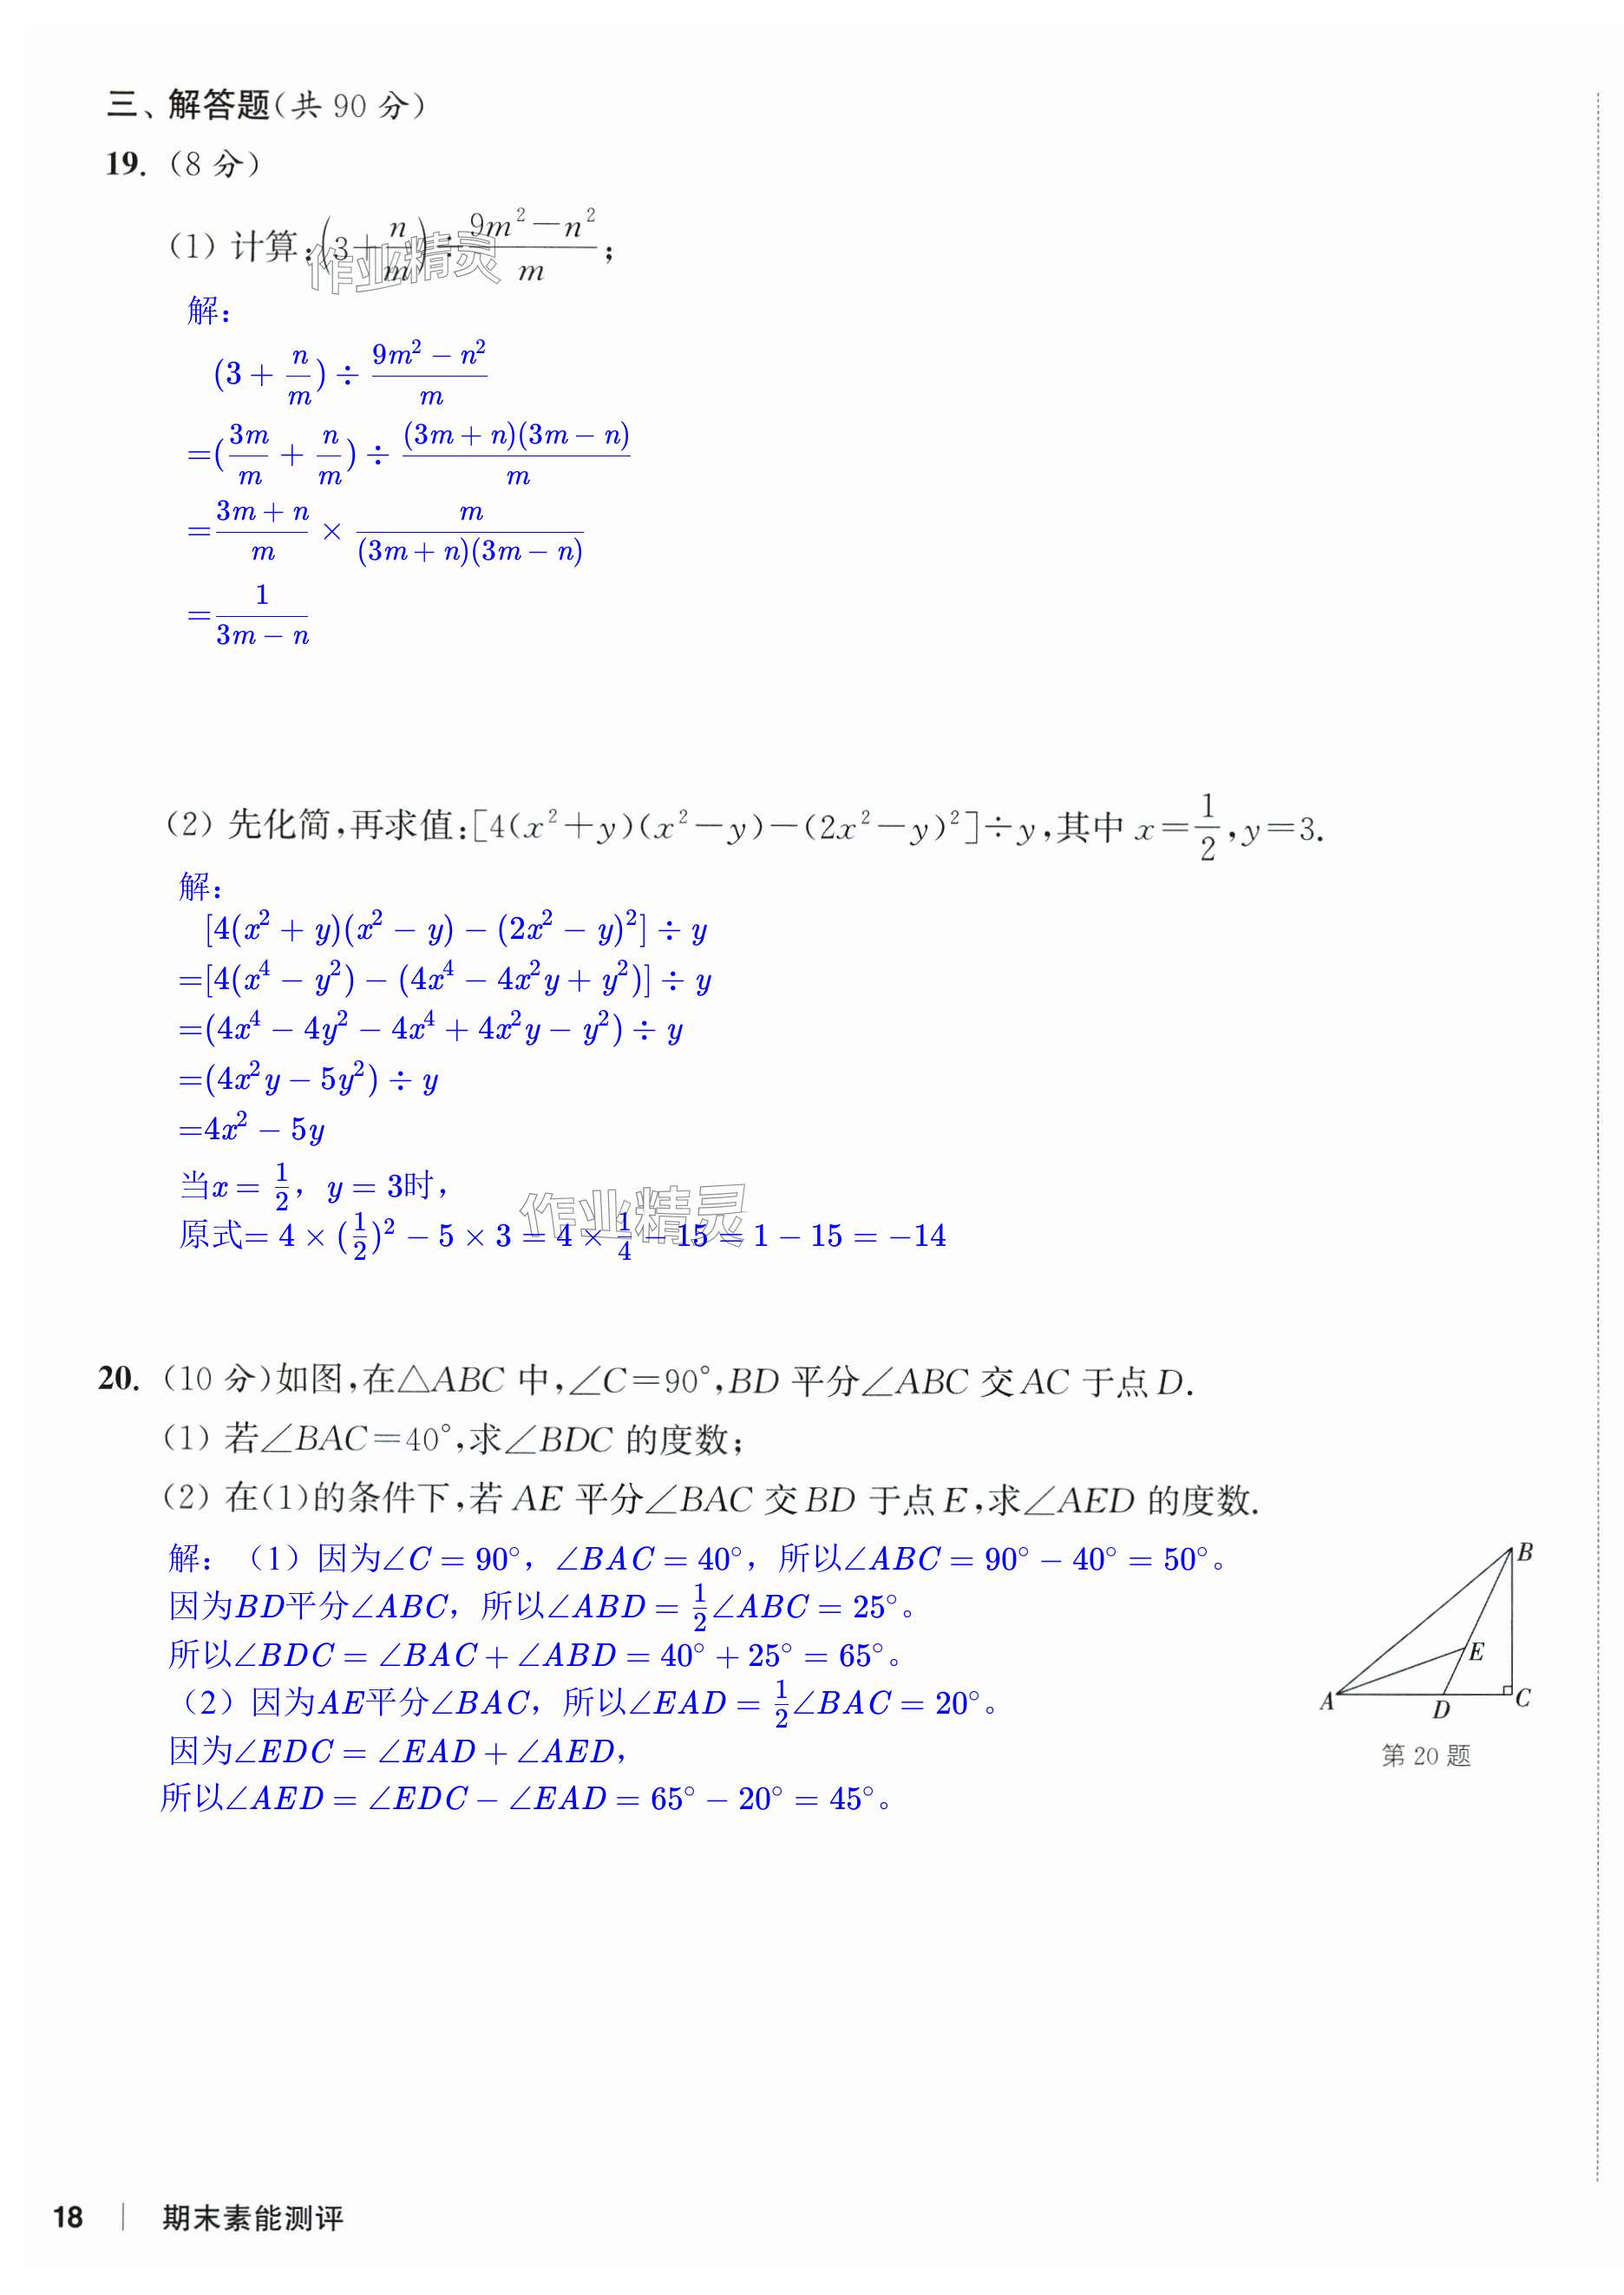 三、解答题(共 90 分)
19. (8 分)
(1) 计算:(3+n/m)÷(9m²－n²)/m;
作业精灵
解:
(3 + n/m) ÷ (9m² − n²)/m
=(3m/m + n/m) ÷ (3m + n)(3m − n)/m
=(3m + n)/m × m/(3m + n)(3m − n)
=1/(3m − n)
(2) 先化简,再求值:[4(x²＋y)(x²－y)－(2x²－y)²]÷y,其中 x＝1/2,y＝3.
解:
[4(x² + y)(x² − y) − (2x² − y)²] ÷ y
=[4(x⁴ − y²) − (4x⁴ − 4x²y + y²)] ÷ y
=(4x⁴ − 4y² − 4x⁴ + 4x²y − y²) ÷ y
=(4x²y − 5y²) ÷ y
=4x² − 5y
当x = 1/2, y = 3时,
作业精灵
原式= 4 × (1/2)² − 5 × 3 = 4 × 1/4 − 15 = 1 − 15 = −14
20. (10 分)如图,在△ABC 中,∠C＝90°,BD 平分∠ABC 交 AC 于点 D.
(1) 若∠BAC＝40°,求∠BDC 的度数;
(2) 在(1)的条件下,若 AE 平分∠BAC 交 BD 于点 E,求∠AED 的度数.
解:（1）因为∠C = 90°, ∠BAC = 40°, 所以∠ABC = 90° − 40° = 50°。
因为BD平分∠ABC, 所以∠ABD = 1/2∠ABC = 25°。
所以∠BDC = ∠BAC + ∠ABD = 40° + 25° = 65°。
（2）因为AE平分∠BAC, 所以∠EAD = 1/2∠BAC = 20°。
因为∠EDC = ∠EAD + ∠AED,
所以∠AED = ∠EDC − ∠EAD = 65° − 20° = 45°。
B
E
A
D
C
第 20 题
18 | 期末素能测评